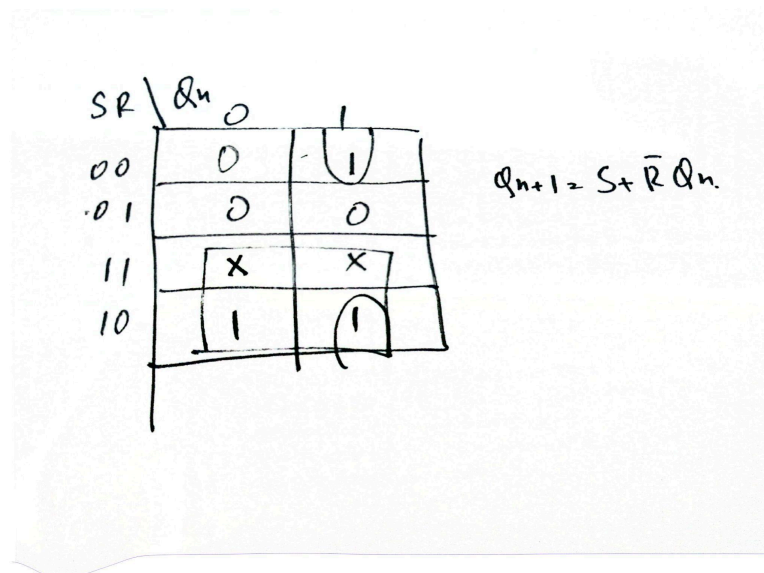 SR \ Qn
0 1
00 0 1
01 0 0
11 x x
10 1 1
Qn+1 = S+ R̄ Qn.